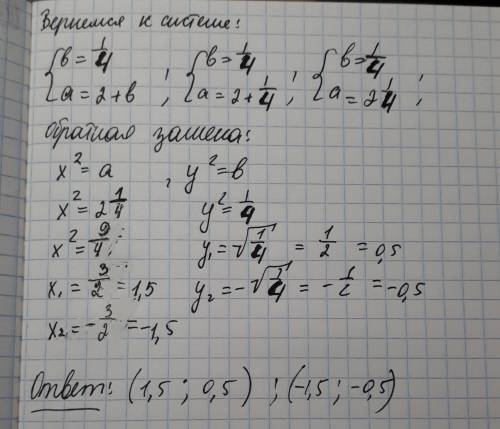 Вернемся к системе:
{b = 1/4 ; {b = 1/4 ; {b = 1/4 ;
{a = 2 + b ; {a = 2 + 1/4 ; {a = 2 1/4 ;
Обратная замена:
x² = a , y² = b
x² = 2 1/4 y² = 1/4
x² = 9/4 y₁ = √(1/4) = 1/2 = 0,5
x₁ = 3/2 = 1,5 y₂ = -√(1/4) = -1/2 = -0,5
x₂ = -3/2 = -1,5
Ответ: (1,5 ; 0,5) ; (-1,5 ; -0,5)